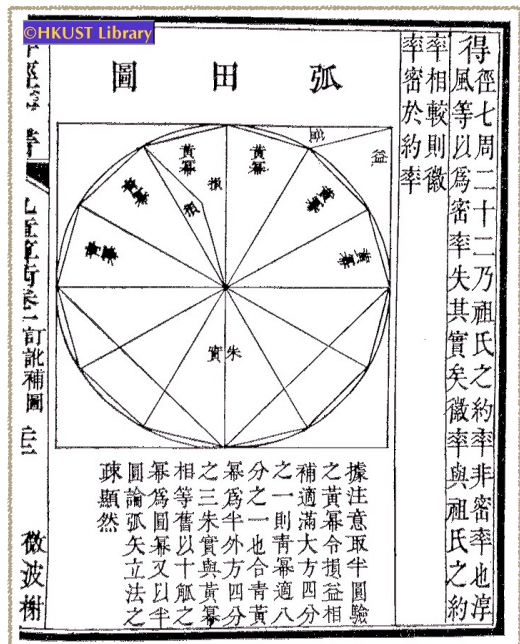 ©HKUST Library
得徑七周二十二乃祖氏之約率非密率也淳
風等以為密率失其實矣徽率與祖氏之約
率相較則徽
率密於約率
弧田圖
益
黃冪
黃冪
損
青冪
青冪
青冪
青冪
朱實
據注意取半圓驗
之黃冪令損益相
補適滿大方四分
之一則青冪適八
分之一也合青黃
冪為半外方四分
之三朱實與黃冪
相等舊以十觚之
冪為圓冪又以半
圓論弧矢立法之
疎顯然
九章算術卷一訂訛補圖
微波榭